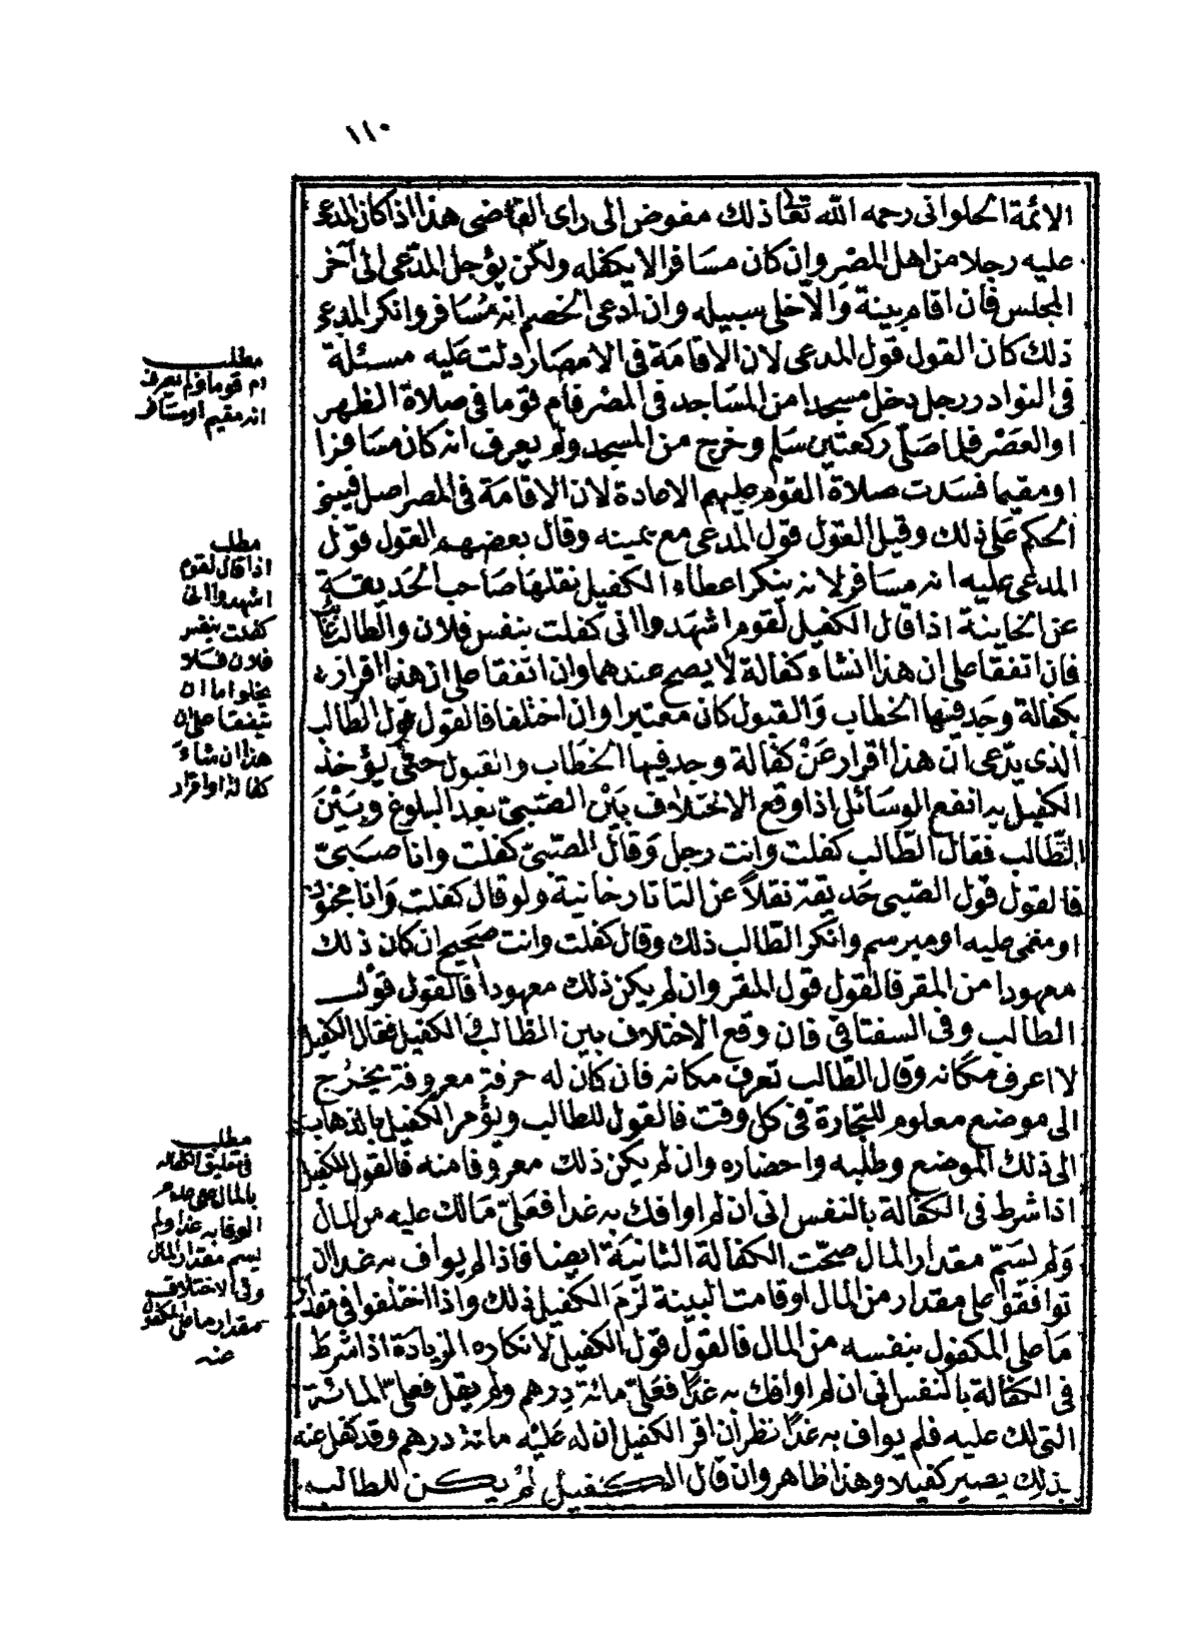 ١١٠
الائمة الحلوانى رحمه الله تعالى ذلك مفوض الى راى القاضى هذا اذا كان المدعى
عليه رجلا من اهل المصر وان كان مسافرا لا يكفله ولكن يؤجل المدعى الى آخر
المجلس فان اقام بينة والا خلى سبيله وان ادعى الخصم انه مسافر وانكر المدعى
ذلك كان القول قول المدعى لان الاقامة فى الامصار دلت عليه مسئلة
فى النوادر رجل دخل مسجدا من المساجد فى المصر فام قوما فى صلاة الظهر
او العصر فلما صلى ركعتين سلم وخرج من المسجد ولم يعرف انه كان مسافرا
او مقيما فسدت صلاة القوم عليهم الاعادة لان الاقامة فى المصر اصل فيبنى
الحكم على ذلك وقيل القول قول المدعى مع يمينه وقال بعضهم القول قول
المدعى عليه انه مسافر لانه ينكر اعطاء الكفيل نقلها صاحب الحديقة
عن الخانية اذا قال الكفيل لقوم اشهدوا انى كفلت بنفس فلان والطالب غائب
فان اتفقا على ان هذا انشاء كفالة لا يصح عندهما وان اتفقا على ان هذا اقرار
بكفالة وجد فيها الخطاب والقبول كان معتبرا وان اختلفا فالقول قول الطالب
الذى يدعى ان هذا اقرار عن كفالة وجد فيها الخطاب والقبول حتى يؤخذ
الكفيل به انفع الوسائل اذا وقع الاختلاف بين الصبى بعد البلوغ وبين
الطالب فقال الطالب كفلت وانت رجل وقال الصبى كفلت وانا صبى
فالقول قول الصبى حديقة نقلا عن التاتارخانية ولو قال كفلت وانا مجنون
او مغمى عليه او مبرسم وانكر الطالب ذلك وقال كفلت وانت صحيح ان كان ذلك
معهودا من المقر فالقول قول المقر وان لم يكن ذلك معهودا فالقول قول
الطالب وفى السفتاقى فان وقع الاختلاف بين الطالب والكفيل فقال الكفيل
لا اعرف مكانه وقال الطالب تعرف مكانه فان كان له حرفة معروفة يخرج
الى موضع معلوم للتجارة فى كل وقت فالقول للطالب ويؤمر الكفيل بالذهاب
الى ذلك الموضع وطلبه واحضاره وان لم يكن ذلك معروفا منه فالقول للكفيل
اذا شرط فى الكفالة بالنفس انى ان لم اوافك به غدا فعلى مالك عليه من المال
ولم يسم مقدار المال صحت الكفالة الثانية ايضا فاذا لم يواف به غدا ان
توافقوا على مقدار من المال او قامت البينة لزم الكفيل ذلك واذا اختلفوا فى مقدار
ما على المكفول بنفسه من المال فالقول قول الكفيل لانكاره الزيادة اذا شرط
فى الكفالة بالنفس انى ان لم اوافك به غدا فعلى مائة درهم ولم يقل فعلى المائة
التى لك عليه فلم يواف به غدا نظر ان اقر الكفيل ان له عليه مائة درهم وقد كفل عنه
بذلك يصير كفيلا وهذا ظاهر وان قال الكفيل لم يكن للطالب
مطلب
ام قوما ولم يعرف
انه مقيم او مسافر
مطلب
اذا قال لقوم
اشهدوا انى
كفلت بنفس
فلان فلا
يخلو اما ان
يتفقا على ان
هذا انشاء
كفالة او اقرار
مطلب
فى تعليق الكفالة
بالمال على عدم
الوفا به غدا ولم
يسم مقدار المال
وفى الاختلاف
بمقدار ما على المكفول
عنه